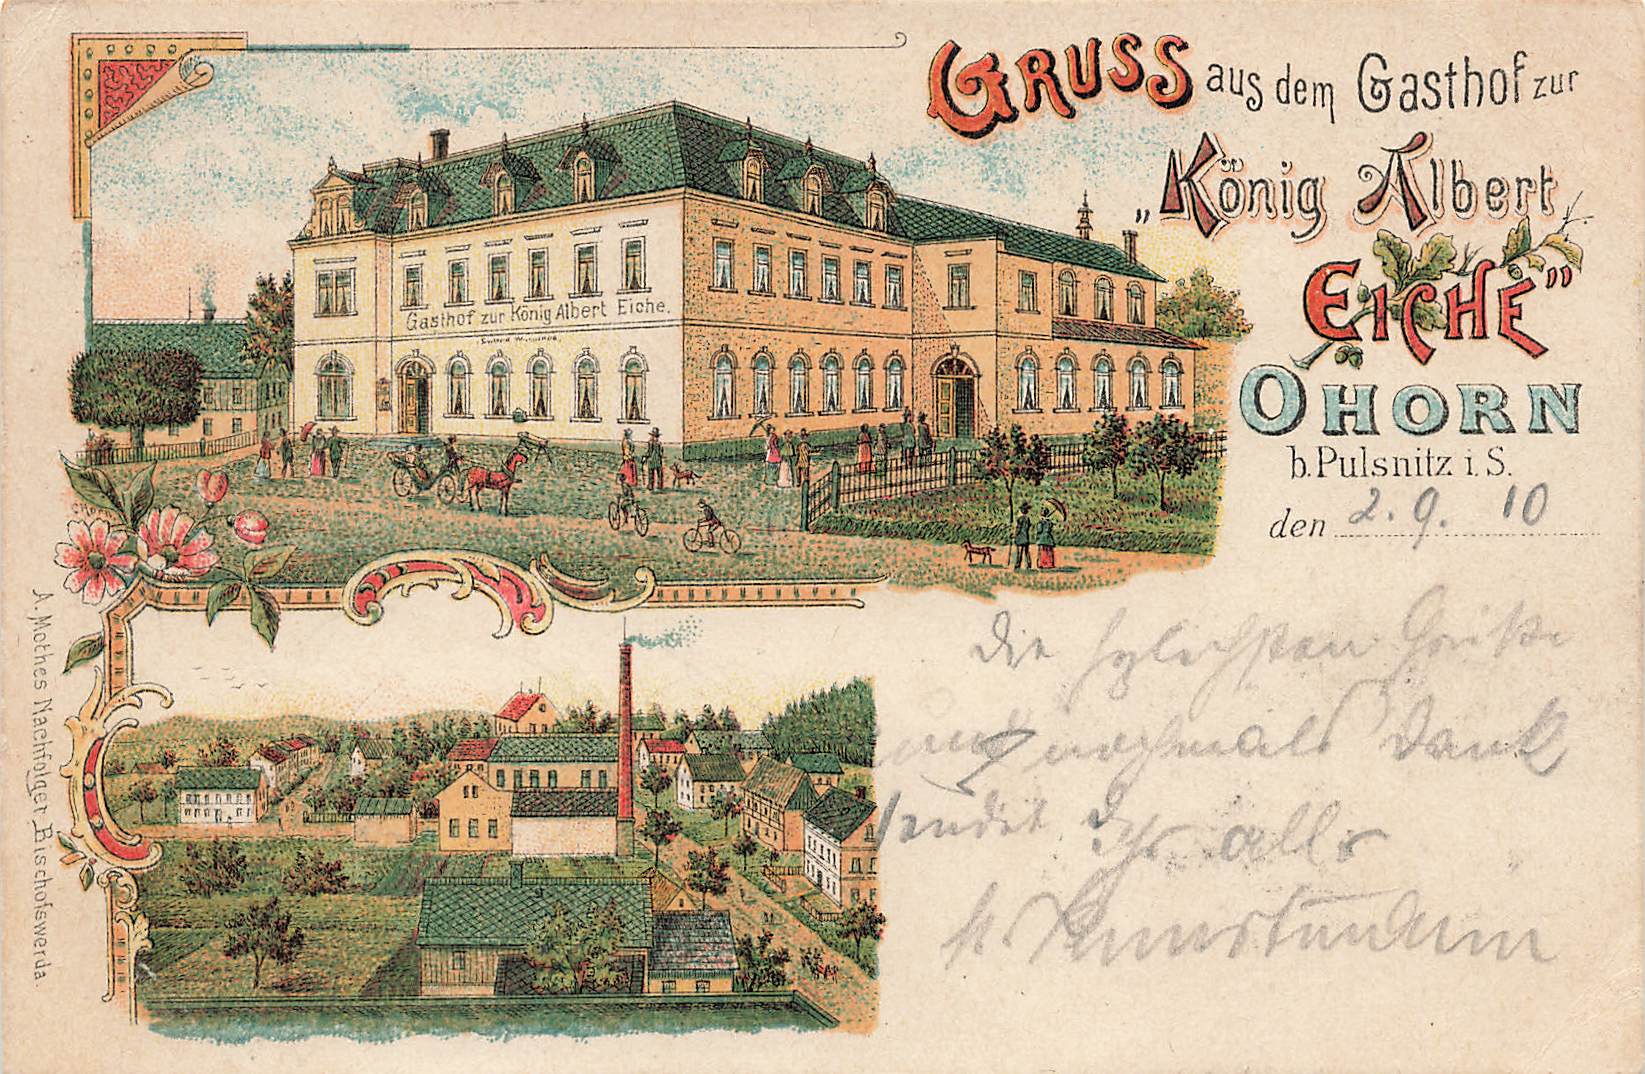 GRUSS aus dem Gasthof zur
„König Albert
EICHE"
OHORN
b. Pulsnitz i. S.
den 2. 9. 10
Gasthof zur König Albert Eiche.
Die herzlichsten Grüße
und nochmals Dank
sendet Ihr alle
A. Mothes Nachfolger Bischofswerda.